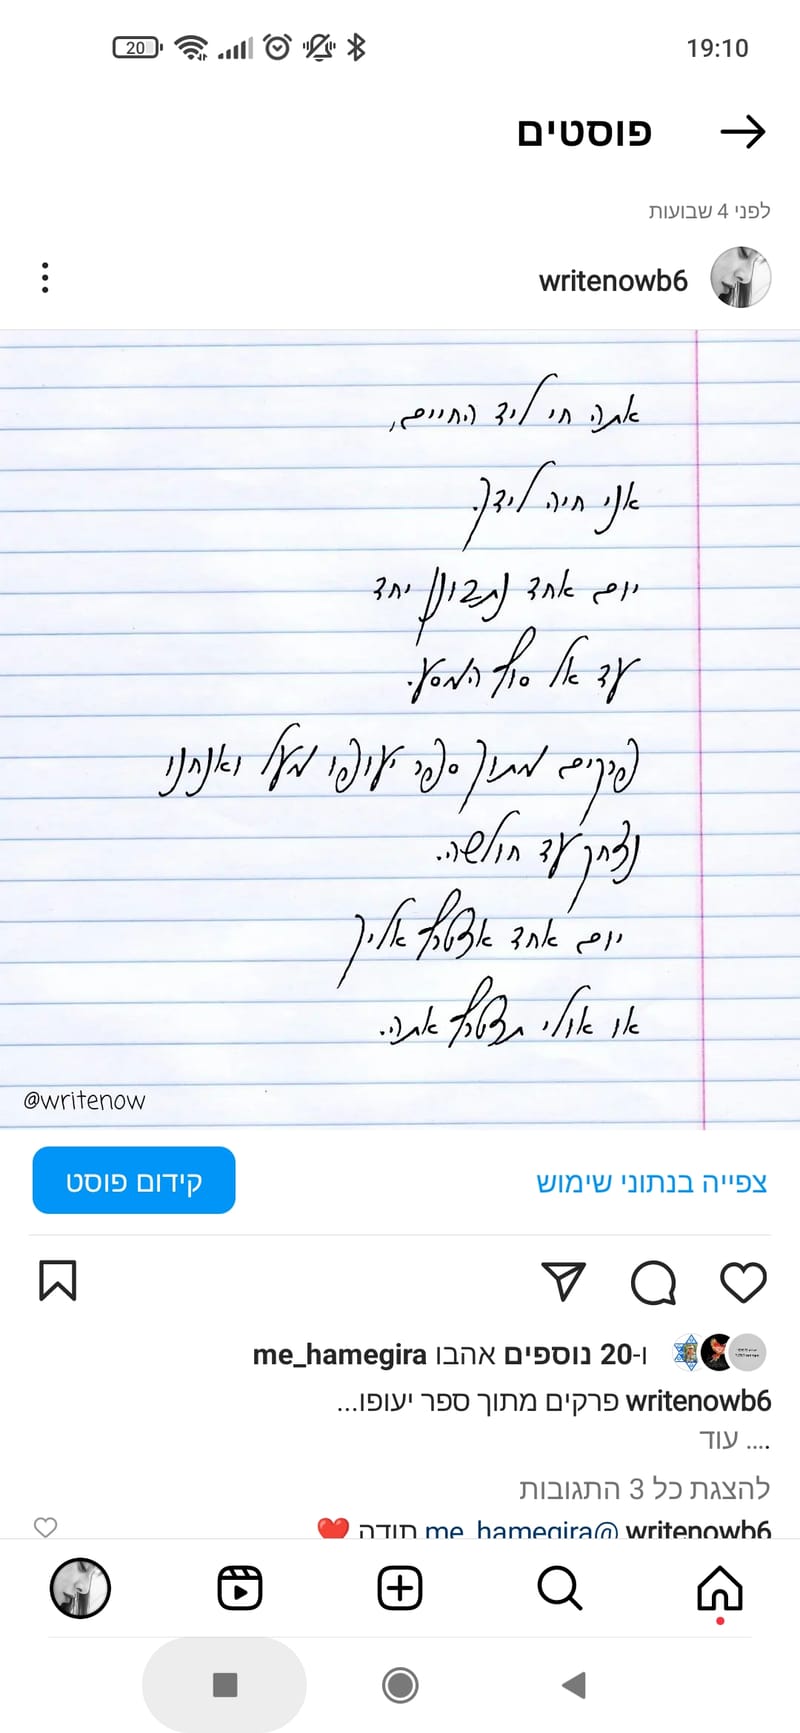 20
19:10
פוסטים
לפני 4 שבועות
writenowb6
אתה חי ליד החיים,
אני חיה לידך.
יום אחד נתבונן יחד
עד אל סוף המסע.
פרקים מתוך ספר יעופו מעל ואנחנו
נצחק עד חולשה.
יום אחד אצטרף אליך
או אולי תצטרף אתה.
@writenow
קידום פוסט
צפייה בנתוני שימוש
me_hamegira ו-20 נוספים אהבו
writenowb6 פרקים מתוך ספר יעופו...
.... עוד
להצגת כל 3 התגובות
writenowb6 @me_hamegira תודה ❤️